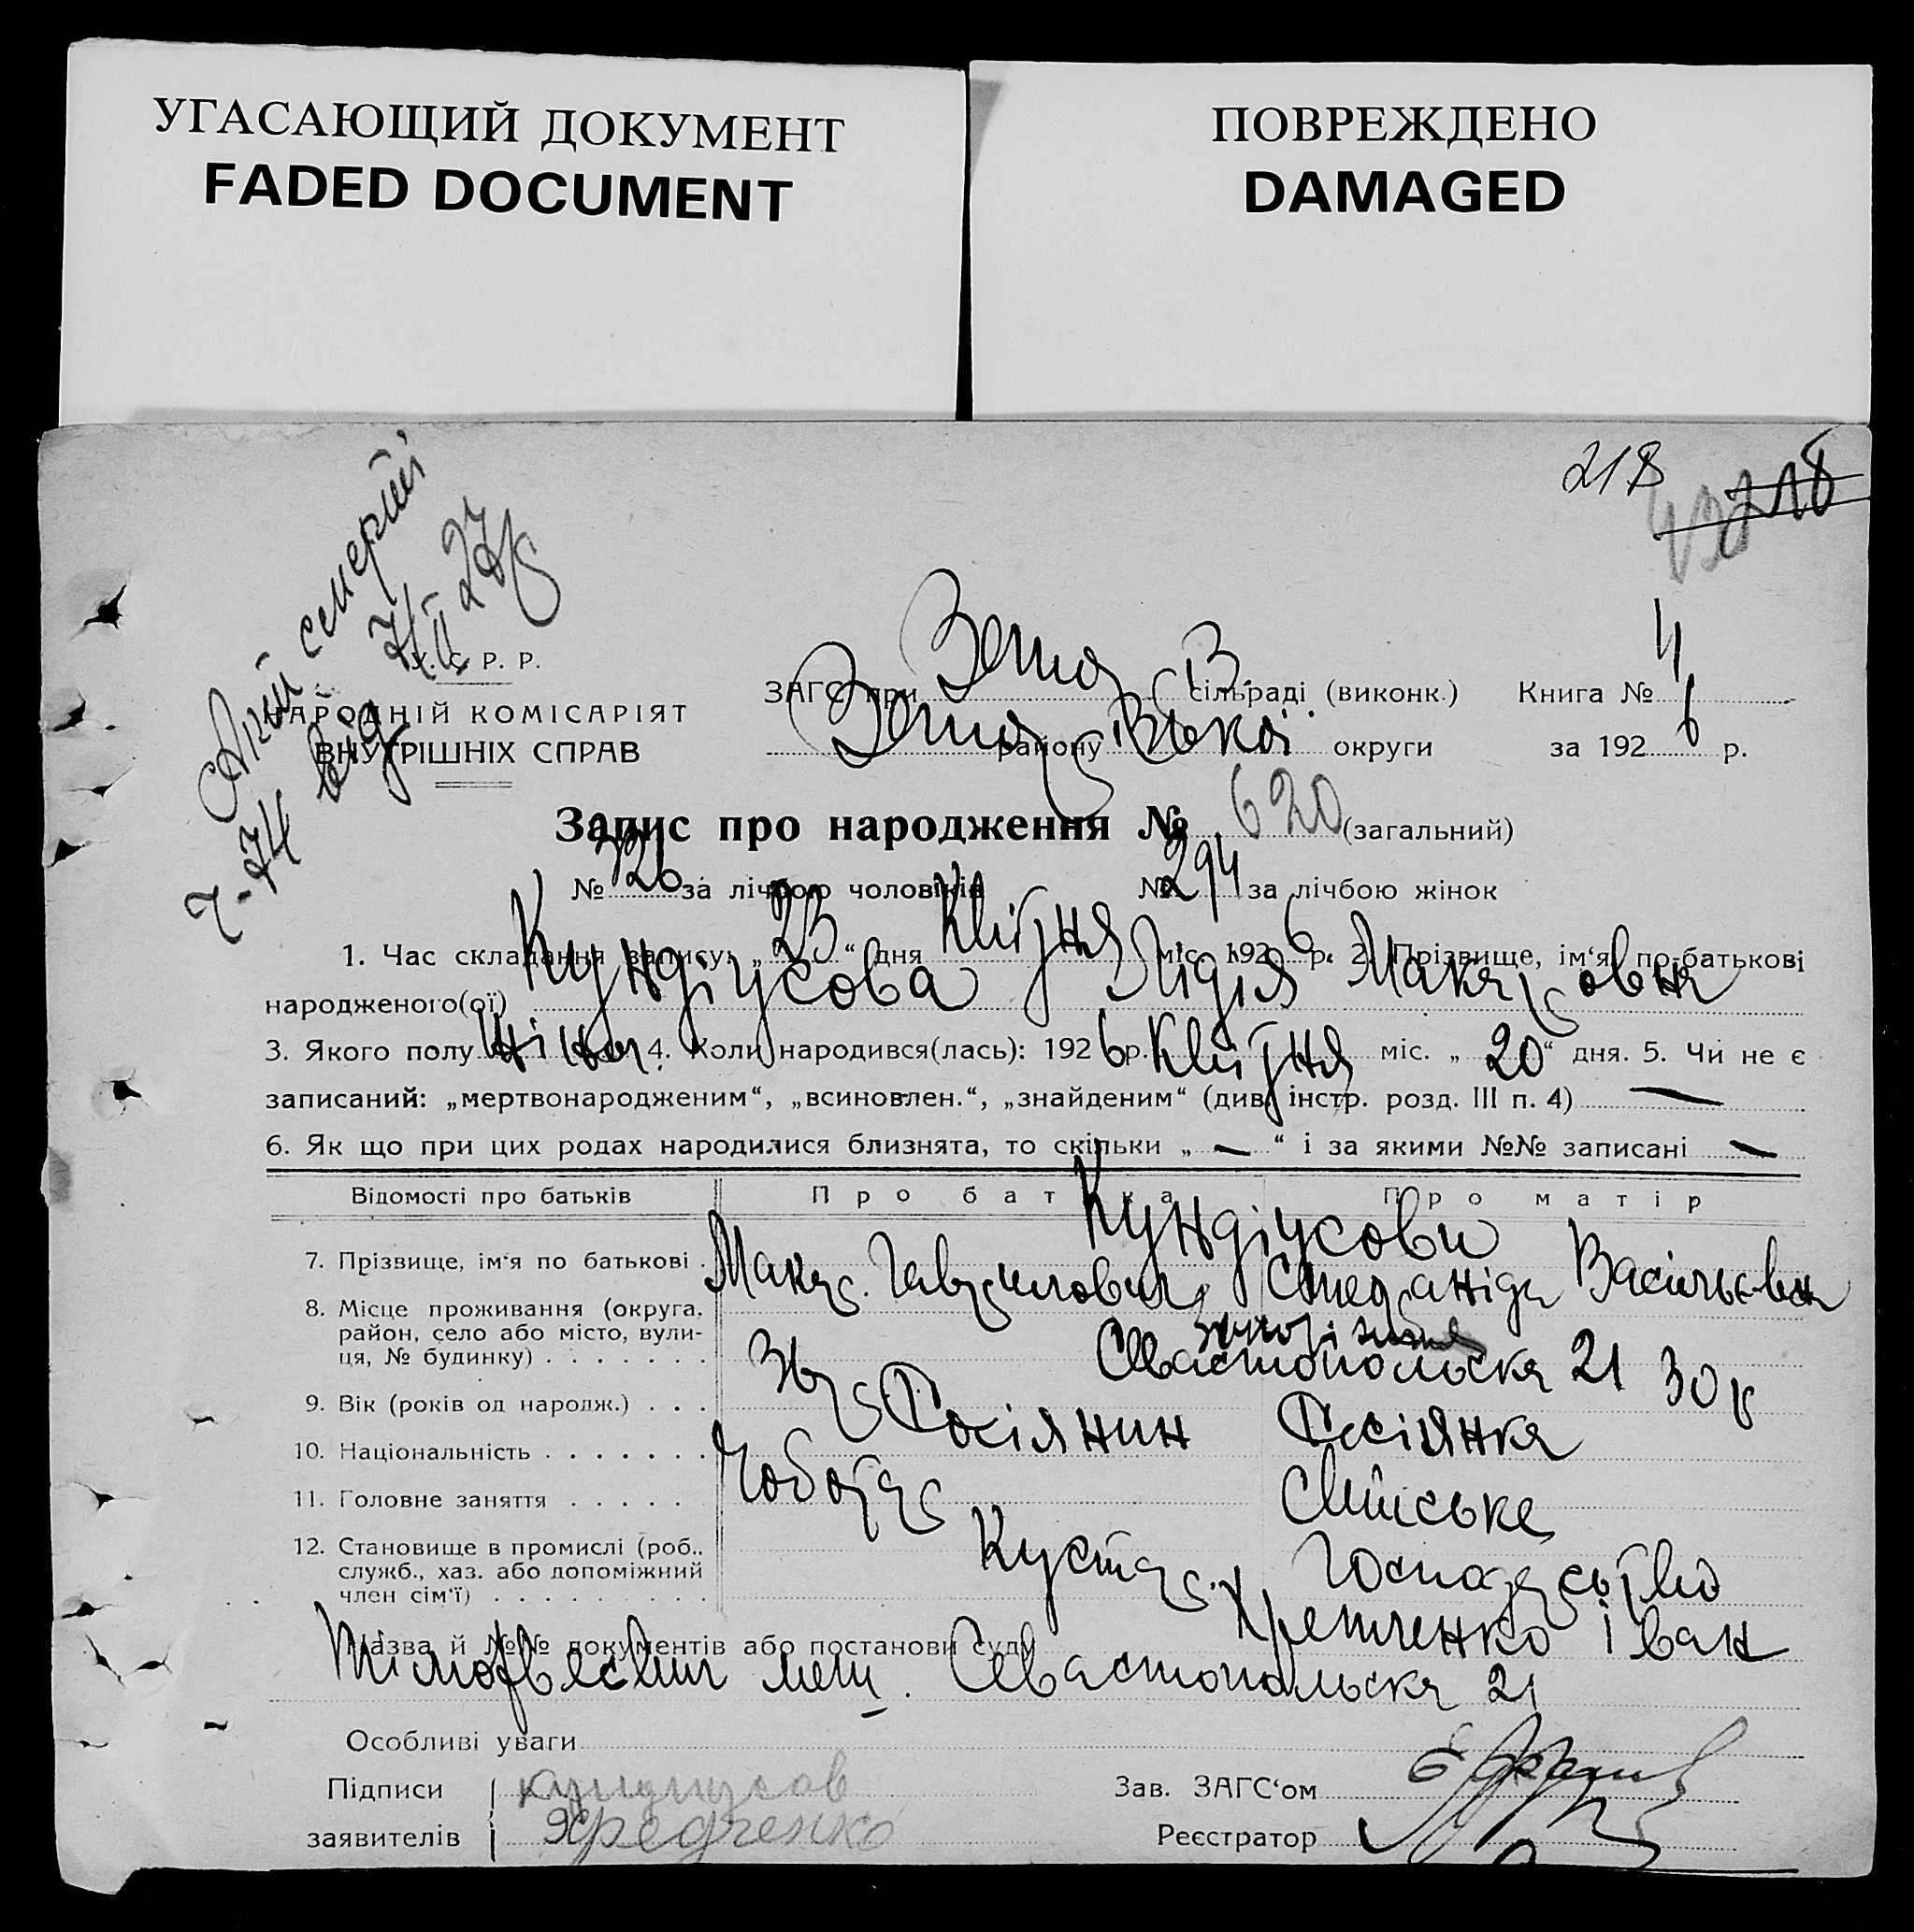 УГАСАЮЩИЙ ДОКУМЕНТ
FADED DOCUMENT
ПОВРЕЖДЕНО
DAMAGED
218
218
Акт смерті
7-74 від 7/II 27
У. С. Р. Р.
НАРОДНІЙ КОМІСАРІЯТ
ВНУТРІШНІХ СПРАВ
ЗАГС при сільраді (виконк.) Книга № 4
району округи за 1926 р.
Запис про народження № 620 (загальний)
№ 326 за лічбою чоловіків № 294 за лічбою жінок
1. Час складання запису: „23“ дня Квітня міс. 1926 р. 2. Прізвище, ім‘я, по-батькові
народженого(ої) Кундіусова Лідія Макаровна
3. Якого полу жіноч. 4. Коли народився(лась): 1926 р. Квітня міс. „20“ дня. 5. Чи не є
записаний: „мертвонародженим“, „всиновлен.“, „знайденим“ (див. інстр. розд. III п. 4) —
6. Як що при цих родах народилися близнята, то скільки „—“ і за якими №№ записані —
Відомості про батьків Про батька Про матір
Кундіусови
7. Прізвище, ім‘я по батькові . Макар Гаврилович Степаніда Васільєвна
8. Місце проживання (округа, район, село або місто, вулиця, № будинку) . . . . . . . Севастопольска 21
9. Вік (років од народж.) . . . 36 р 30 р
10. Національність . . . . . . . Росіянин Росіянка
11. Головне заняття . . . . . Чоботар Хатнє
12. Становище в промислі (роб., служб., хаз. або допоміжний член сім‘ї) . . . . . . . . . Кустар. Господарство
Назва й №№ документів або постанови суду Іван
меш. Севастопольска 21
Особливі уваги
Підписи Кундиусов Зав. ЗАГС‘ом
заявителів Хредченко Реєстратор